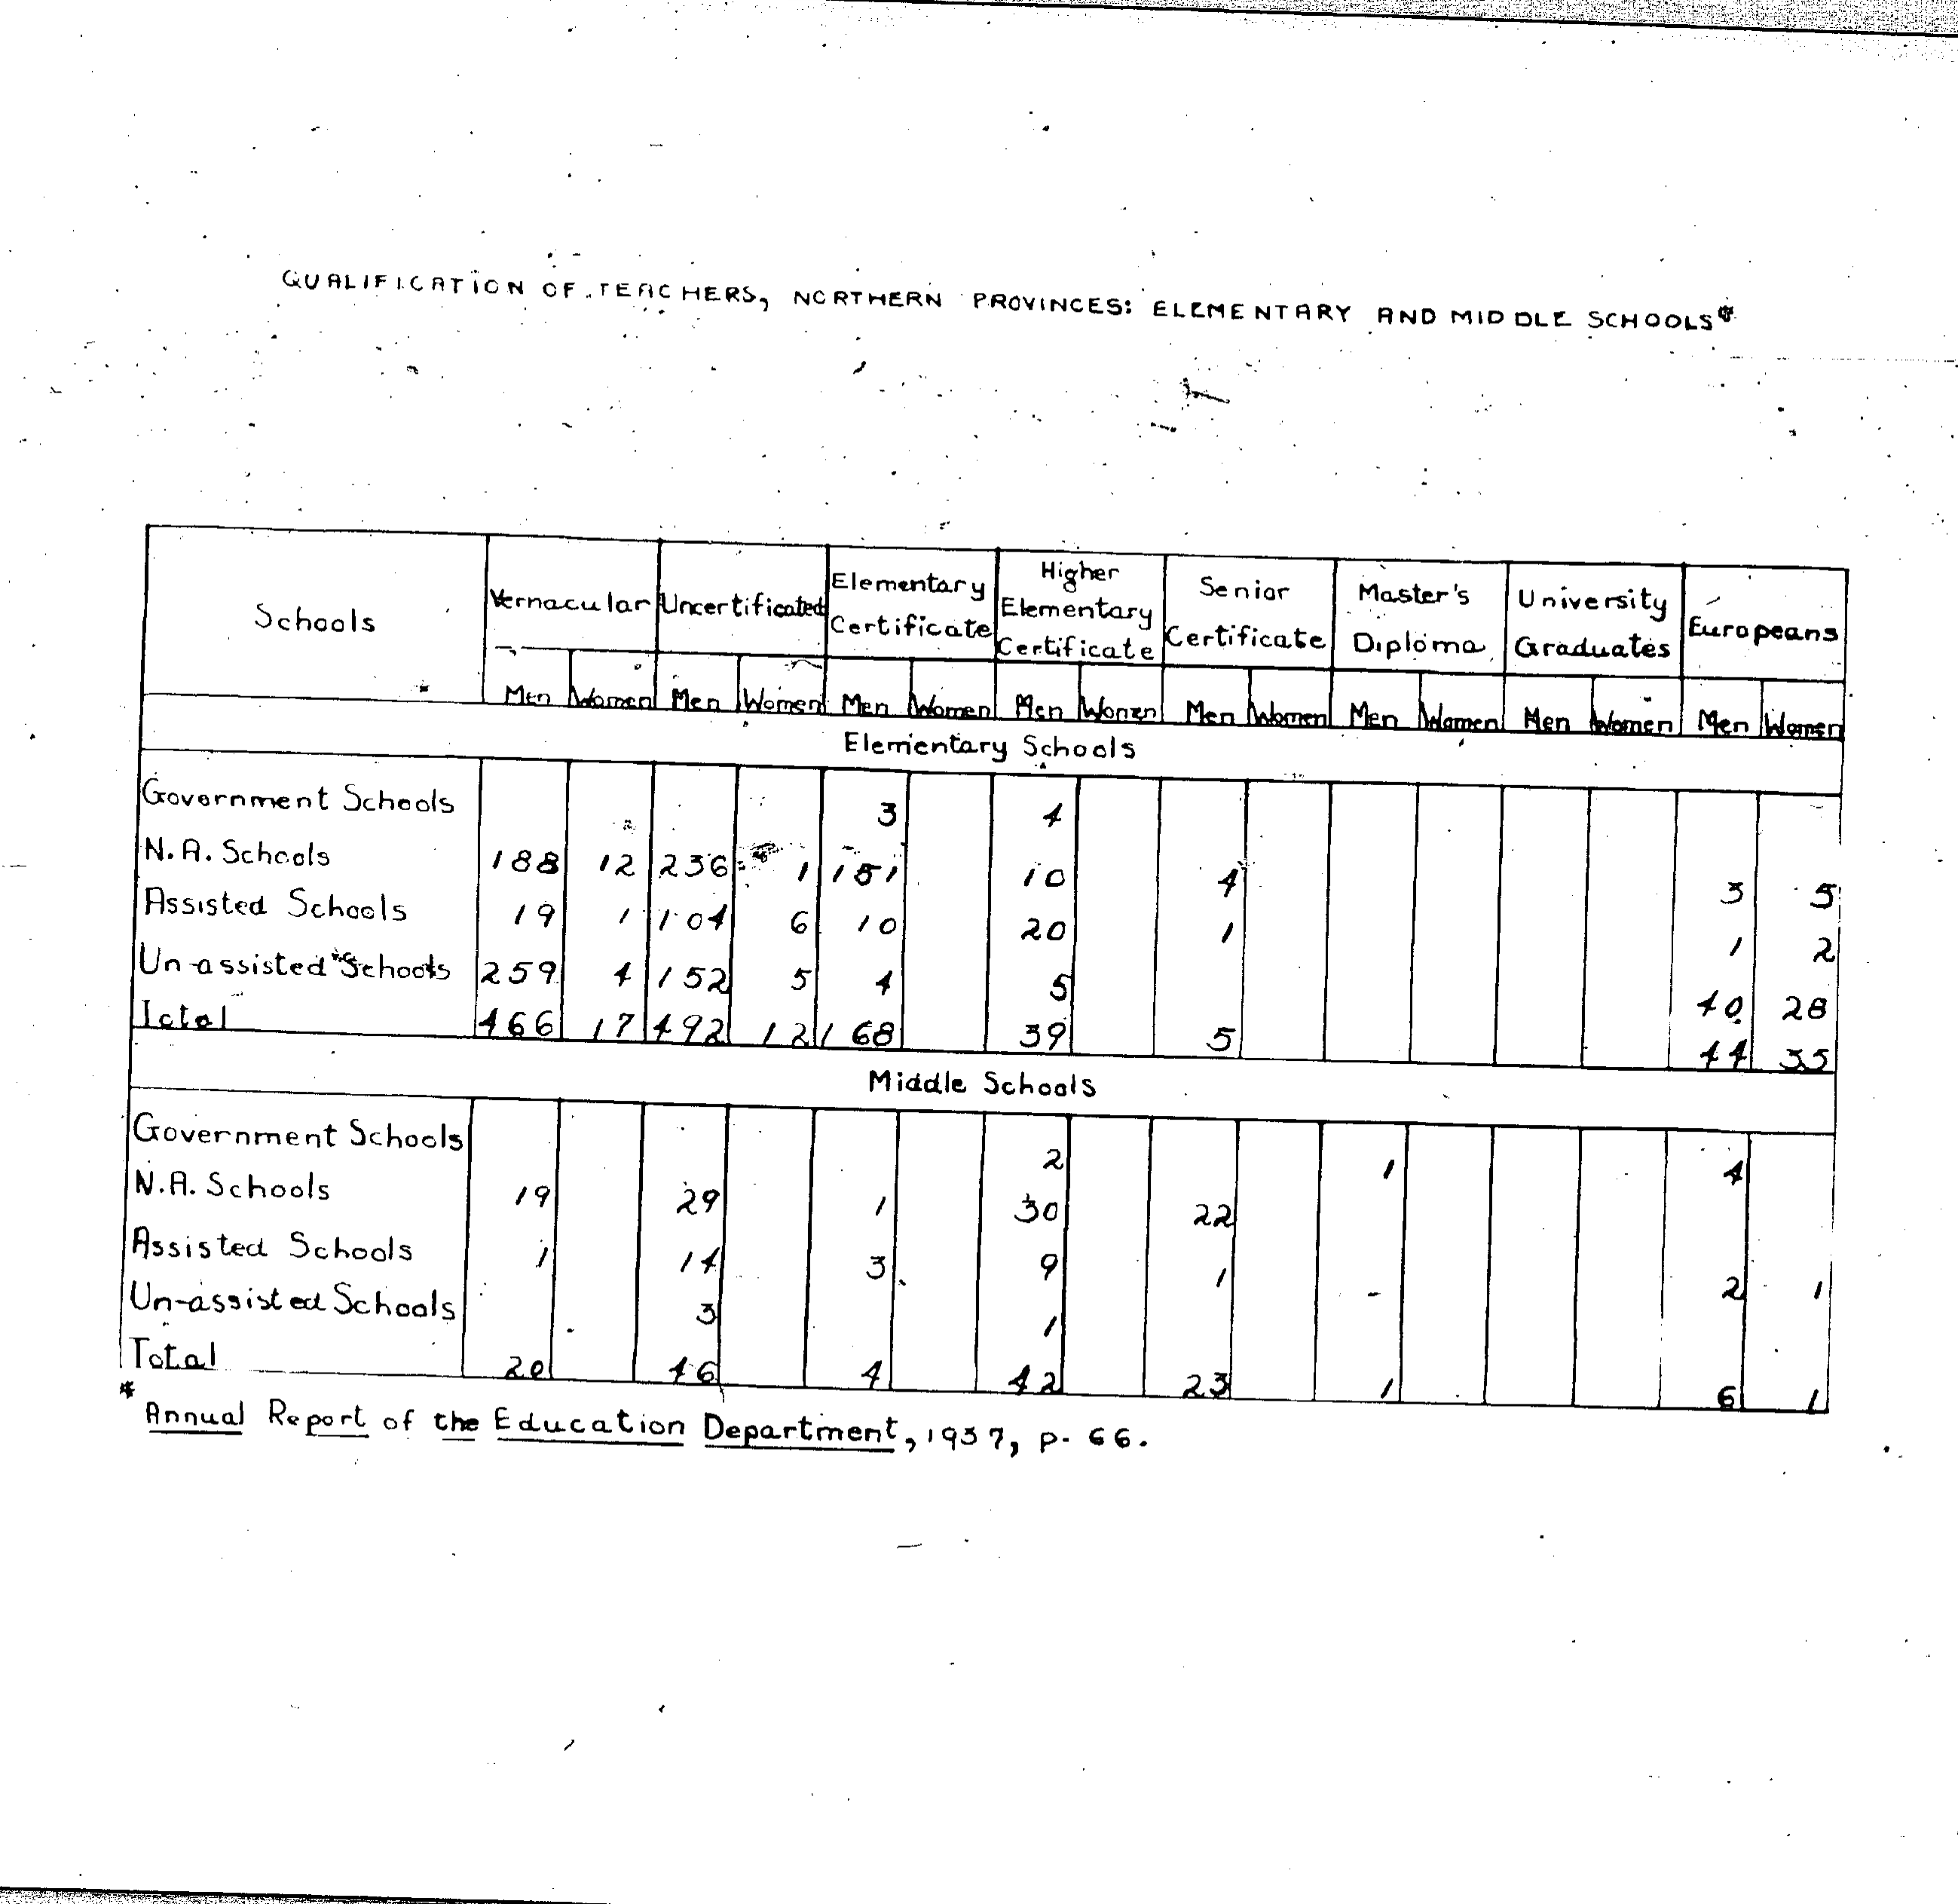 QUALIFICATION OF TEACHERS, NORTHERN PROVINCES: ELEMENTARY AND MIDDLE SCHOOLS*
Schools Vernacular Uncertificated Elementary Certificate Higher Elementary Certificate Senior Certificate Master's Diploma University Graduates Europeans
Men Women Men Women Men Women Men Women Men Women Men Women Men Women Men Women
Elementary Schools
Government Schools 3 4
N.A. Schools 188 12 236 1 151 10 4 3 5
Assisted Schools 19 1 104 6 10 20 1 1 2
Un-assisted Schools 259 4 152 5 4 5 40 28
Total 466 17 492 12 168 39 5 44 35
Middle Schools
Government Schools 2 1 4
N.A. Schools 19 29 1 30 22
Assisted Schools 1 14 3 9 1 - 2 1
Un-assisted Schools 3 1
Total 20 46 4 42 23 1 6 1
* Annual Report of the Education Department, 1937, p. 66.